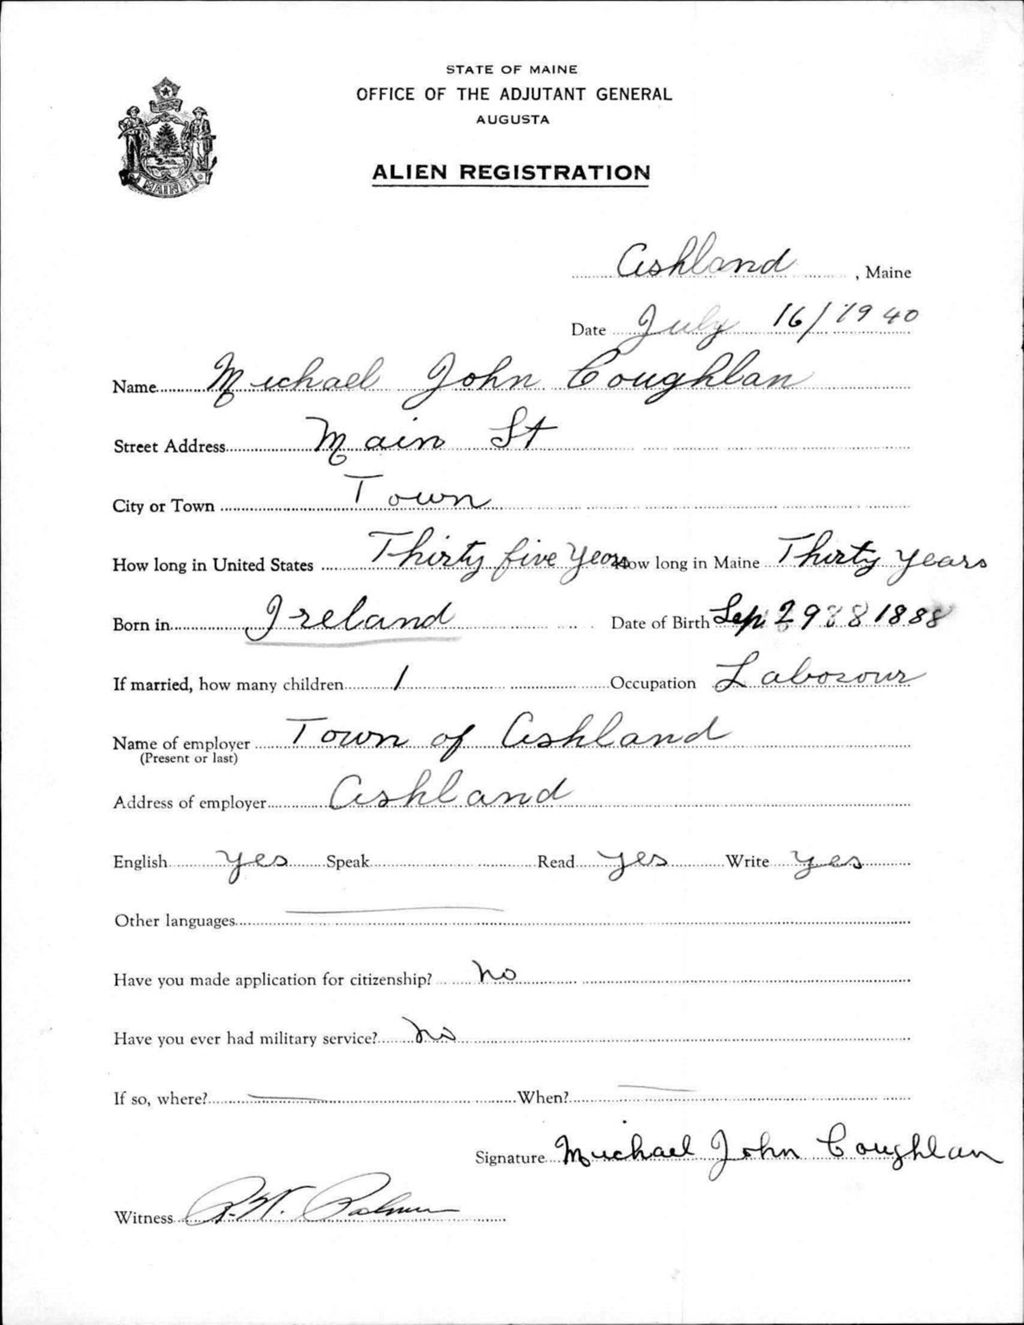 STATE OF MAINE
OFFICE OF THE ADJUTANT GENERAL
AUGUSTA
ALIEN REGISTRATION
MAINE
Ashland, Maine
Date July 16/1940
Name Michael John Coughlan
Street Address Main St
City or Town Town
How long in United States Thirty five Years How long in Maine Thirty years
Born in Ireland Date of Birth Sep 29 1888
If married, how many children 1 Occupation Labourour
Name of employer Town of Ashland
(Present or last)
Address of employer Ashland
English yes Speak Read yes Write yes
Other languages
Have you made application for citizenship? no
Have you ever had military service? no
If so, where? When?
Signature Michael John Coughlan
Witness R.W. Palmer